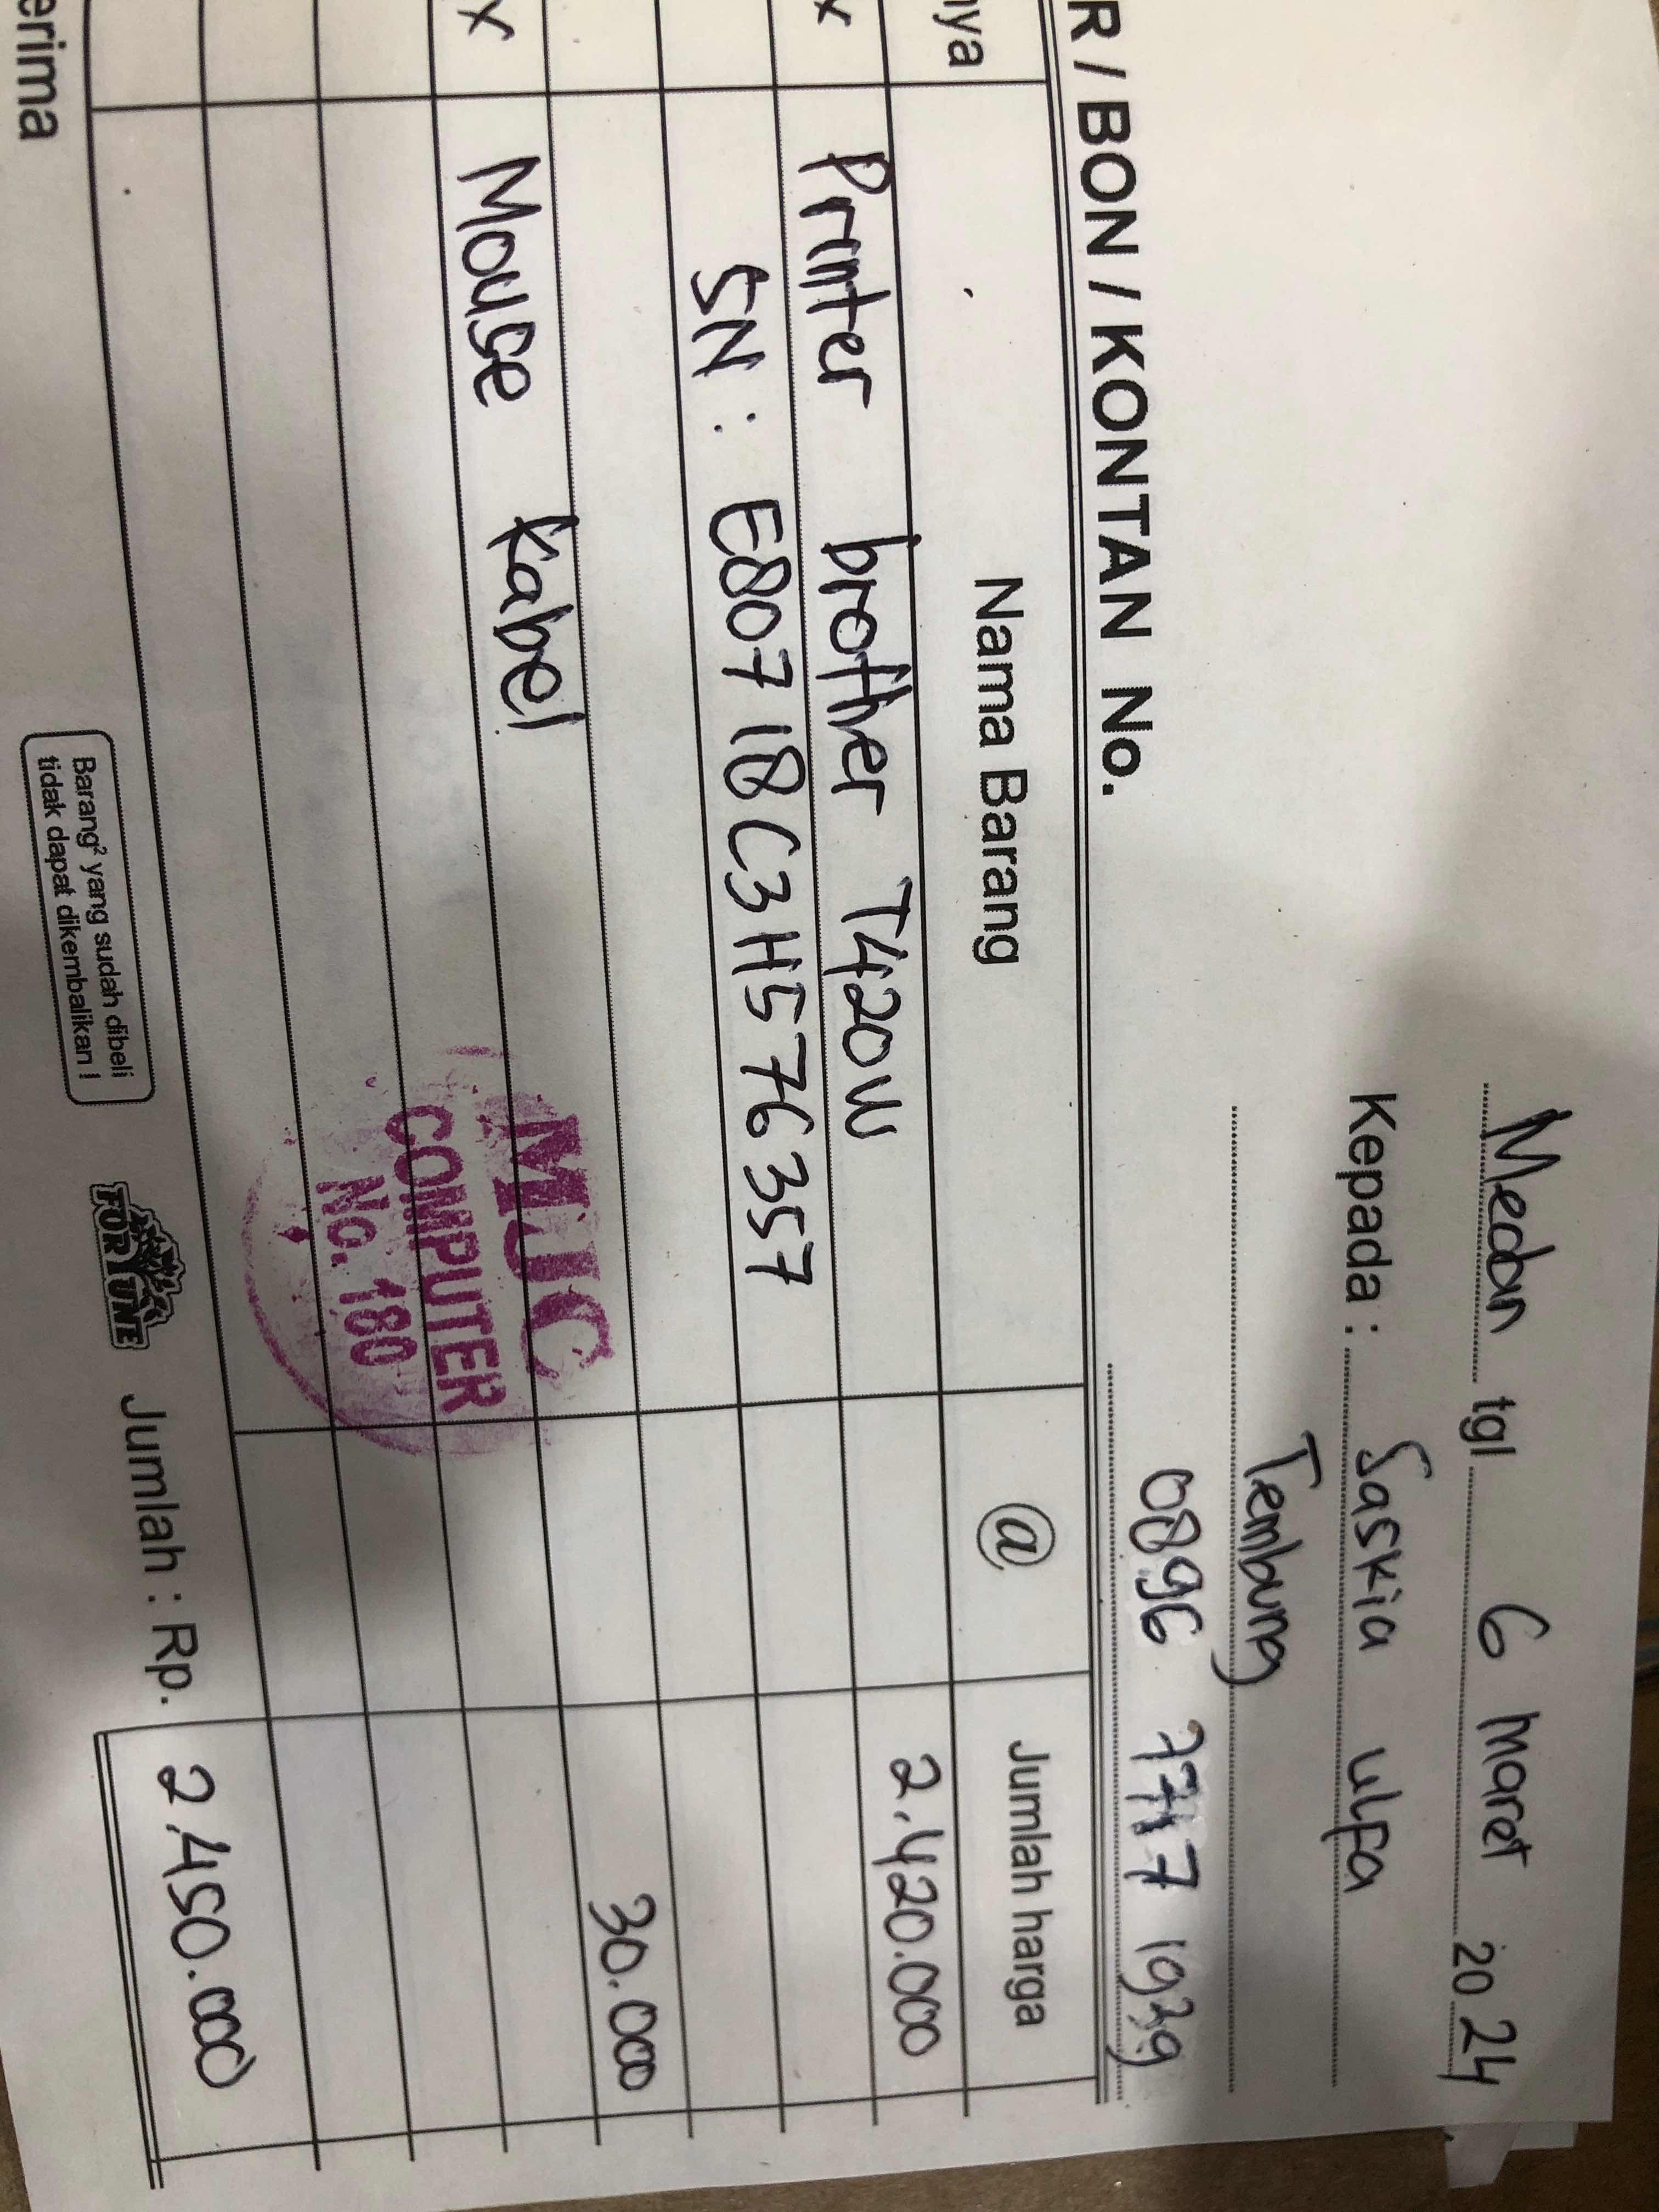 Medan tgl 6 maret 2024
Kepada : Saskia ulfa
Tembung
0896 7717 1939
R / BON / KONTAN No.
nya Nama Barang @ Jumlah harga
x Printer brother T420W 2.420.000
SN : E80718C3H576357
x Mouse Kabel 30.000
MJC
COMPUTER
No. 180
Jumlah : Rp. 2.450.000
erima
Barang² yang sudah dibeli
tidak dapat dikembalikan !
FORTUNE